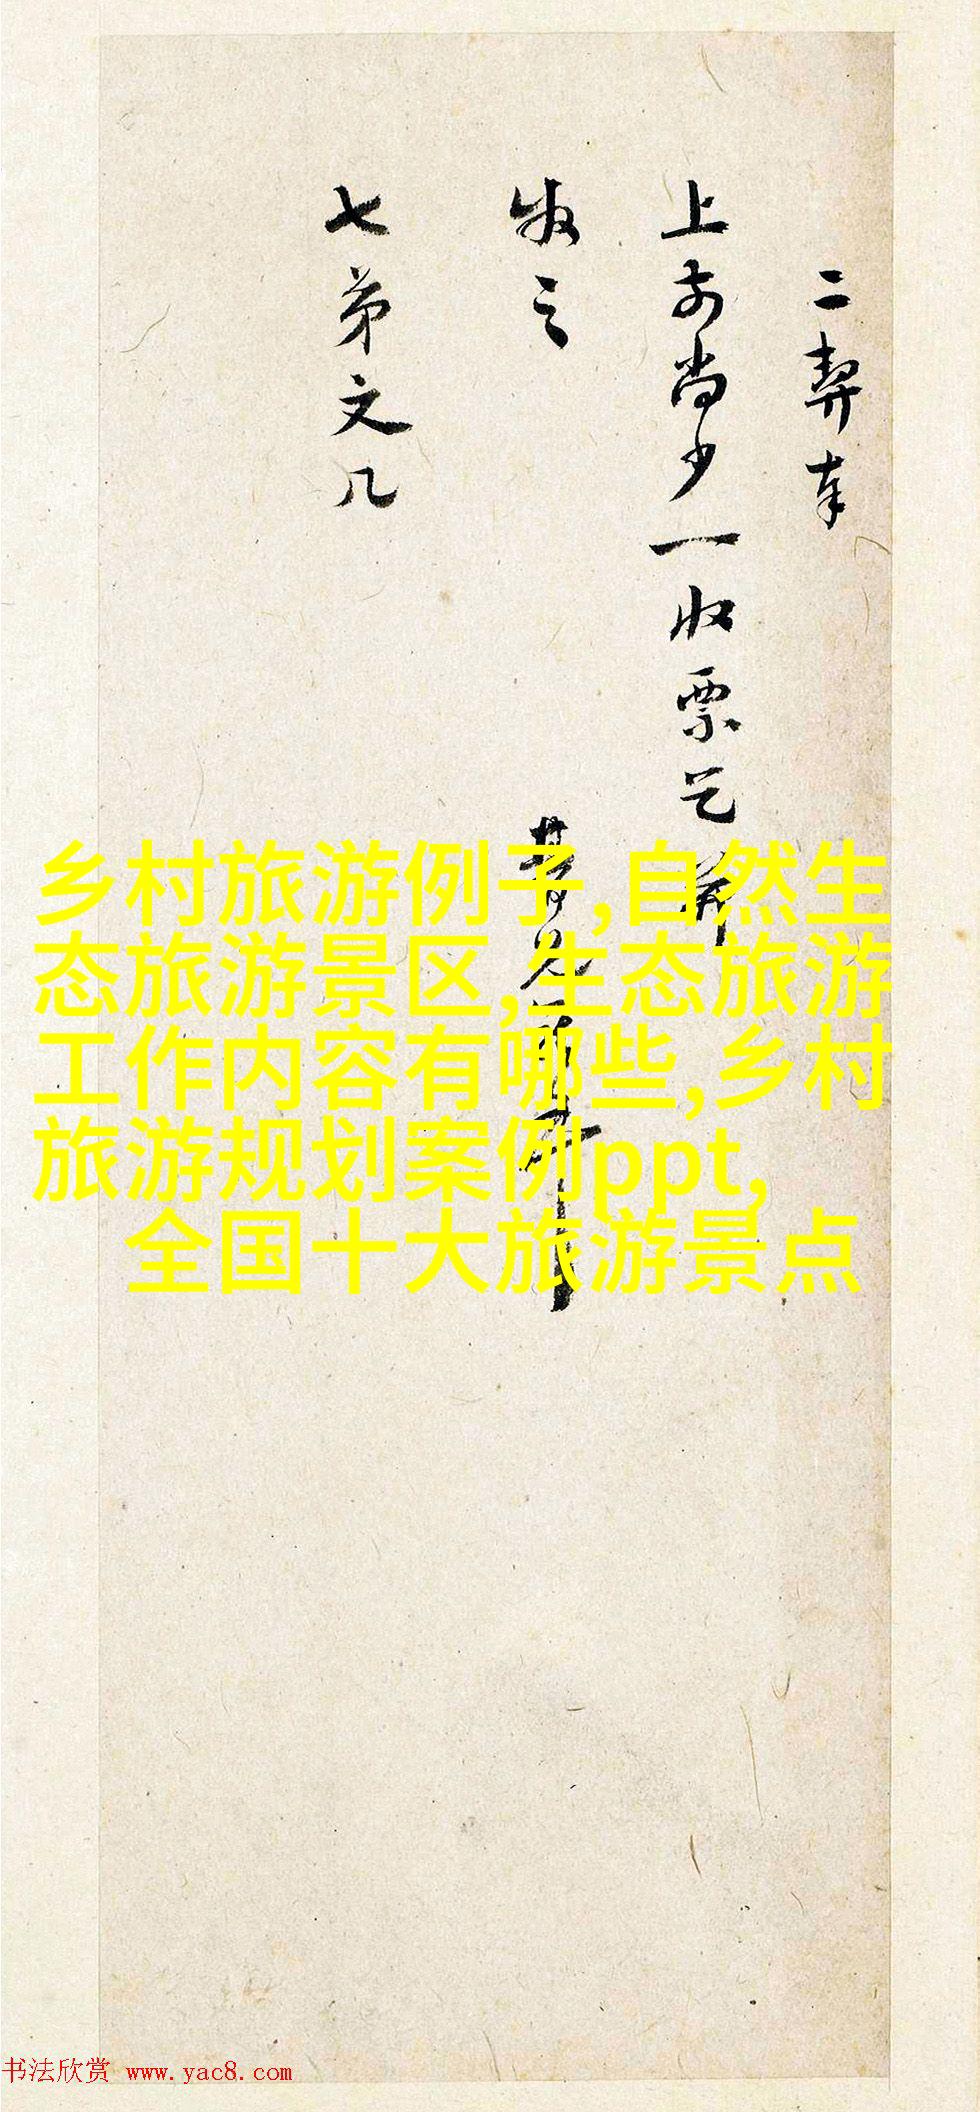 二契奉
上前尚少一收票乞并
收之
七弟文几
乡村旅游例子,自然生
态旅游景区,生态旅游
工作内容有哪些,乡村
旅游规划案例ppt,
全国十大旅游景点
书法欣赏 www.yac8.com